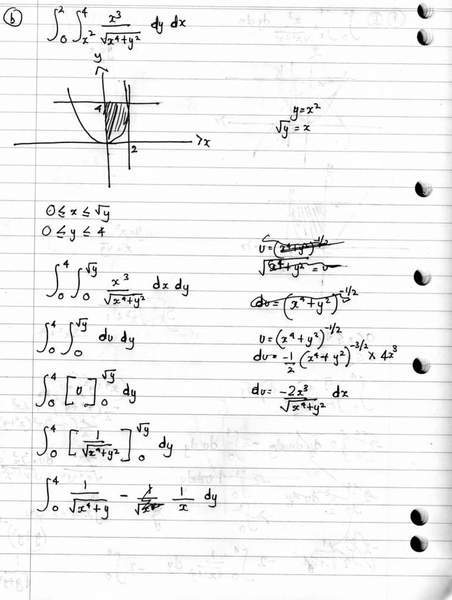 (b) ∫₀² ∫ₓ²⁴ x³/√(x⁴+y²) dy dx
y
4
x
2
y = x²
√y = x
0 ≤ x ≤ √y
0 ≤ y ≤ 4
∫₀⁴ ∫₀^√y x³/√(x⁴+y²) dx dy
∫₀⁴ ∫₀^√y du dy
∫₀⁴ [u]₀^√y dy
∫₀⁴ [1/√(x⁴+y²)]₀^√y dy
∫₀⁴ 1/√(x⁴+y) − 1/x dy
u = (x⁴+y²)^-1/2
√(x⁴+y²) = u
du = (x⁴+y²)^-1/2
u = (x⁴+y²)^-1/2
du = -1/2 (x⁴+y²)^-3/2 × 4x³
du = -2x³/√(x⁴+y²) dx